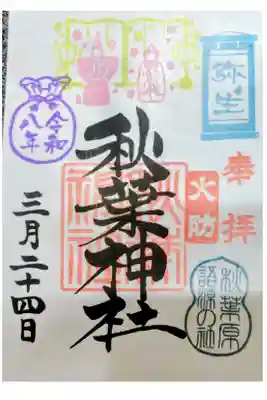 弥生
奉拝
火防
秋葉神社
令和
八年
三月二十四日
秋葉原
語源の社